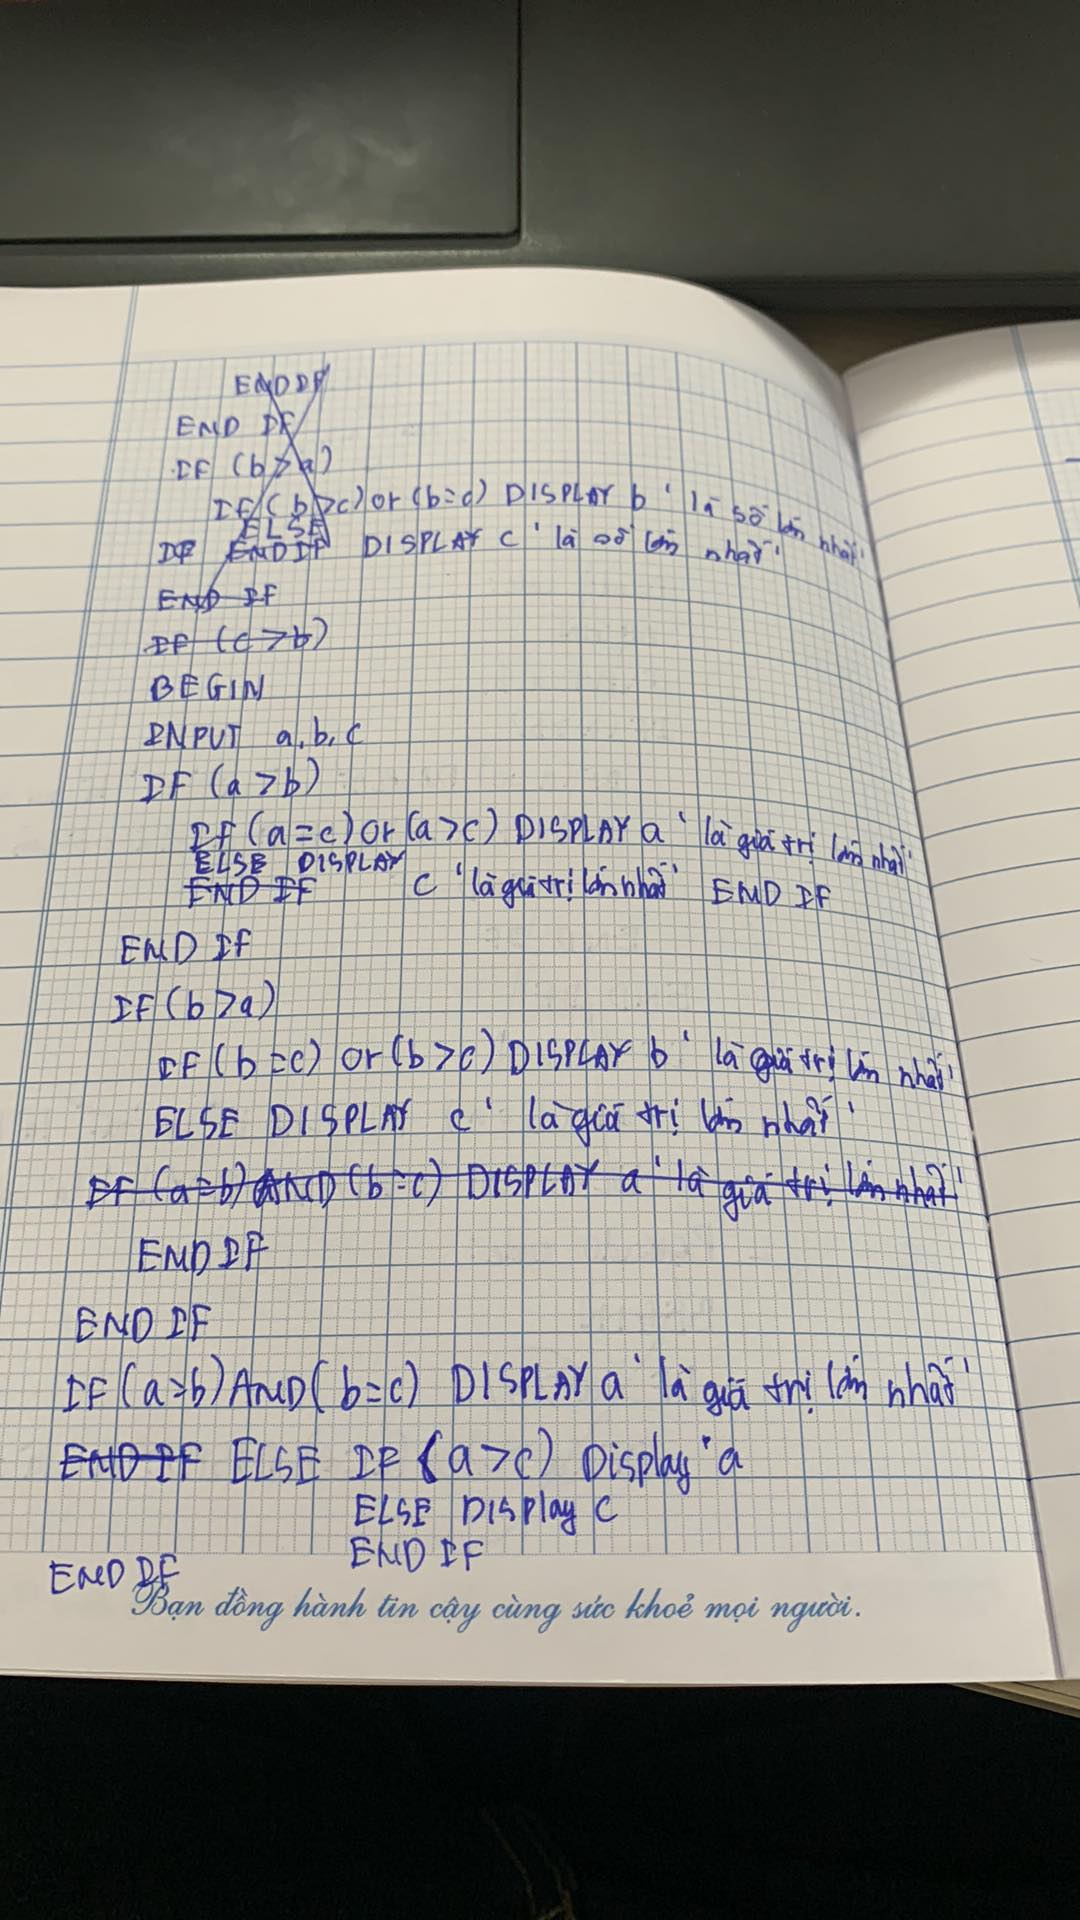 END IF
END IF
IF (b > a)
IF (b > c) or (b = c) DISPLAY b ' là số lớn nhất'
ELSE
IF END IF DISPLAY c ' là số lớn nhất'
END IF
IF (c > b)
BEGIN
INPUT a, b, c
IF (a > b)
IF (a = c) or (a > c) DISPLAY a ' là giá trị lớn nhất'
ELSE DISPLAY
END IF c ' là giá trị lớn nhất' END IF
END IF
IF (b > a)
IF (b = c) or (b > c) DISPLAY b ' là giá trị lớn nhất'
ELSE DISPLAY c ' là giá trị lớn nhất'
IF (a = b) AND (b = c) DISPLAY a ' là giá trị lớn nhất'
END IF
END IF
IF (a = b) AND (b = c) DISPLAY a ' là giá trị lớn nhất'
END IF ELSE IF (a > c) Display a
ELSE DISPlay c
END IF
END IF
Bạn đồng hành tin cậy cùng sức khoẻ mọi người.